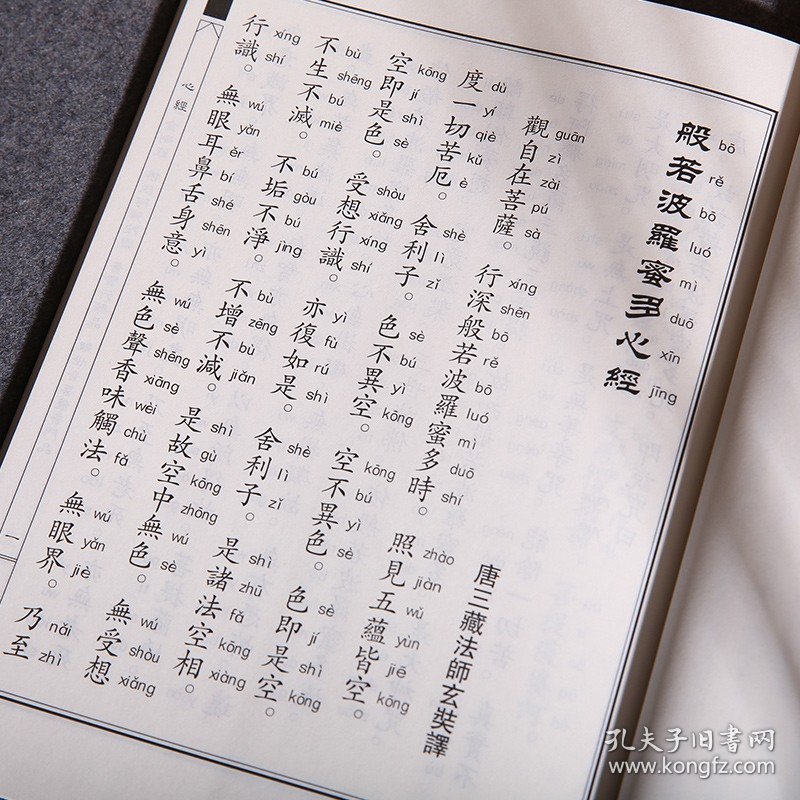 bō rě bō luó mì duō xīn jīng
般若波羅蜜多心經
唐三藏法師玄奘譯
guān zì zài pú sà xíng shēn bō rě bō luó mì duō shí zhào jiàn wǔ yùn jiē kōng
觀自在菩薩。行深般若波羅蜜多時。照見五蘊皆空。
dù yí qiè kǔ è shè lì zǐ sè bú yì kōng kōng bú yì sè sè jí shì kōng
度一切苦厄。舍利子。色不異空。空不異色。色即是空。
kōng jí shì sè shòu xiǎng xíng shí yì fù rú shì shè lì zǐ shì zhū fǎ kōng xiàng
空即是色。受想行識。亦復如是。舍利子。是諸法空相。
bù shēng bú miè bú gòu bú jìng bù zēng bù jiǎn shì gù kōng zhōng wú sè wú shòu xiǎng
不生不滅。不垢不淨。不增不減。是故空中無色。無受想
xíng shí wú yǎn ěr bí shé shēn yì wú sè shēng xiāng wèi chù fǎ wú yǎn jiè nǎi zhì
行識。無眼耳鼻舌身意。無色聲香味觸法。無眼界。乃至
心經
一
孔夫子旧书网
www.kongfz.com